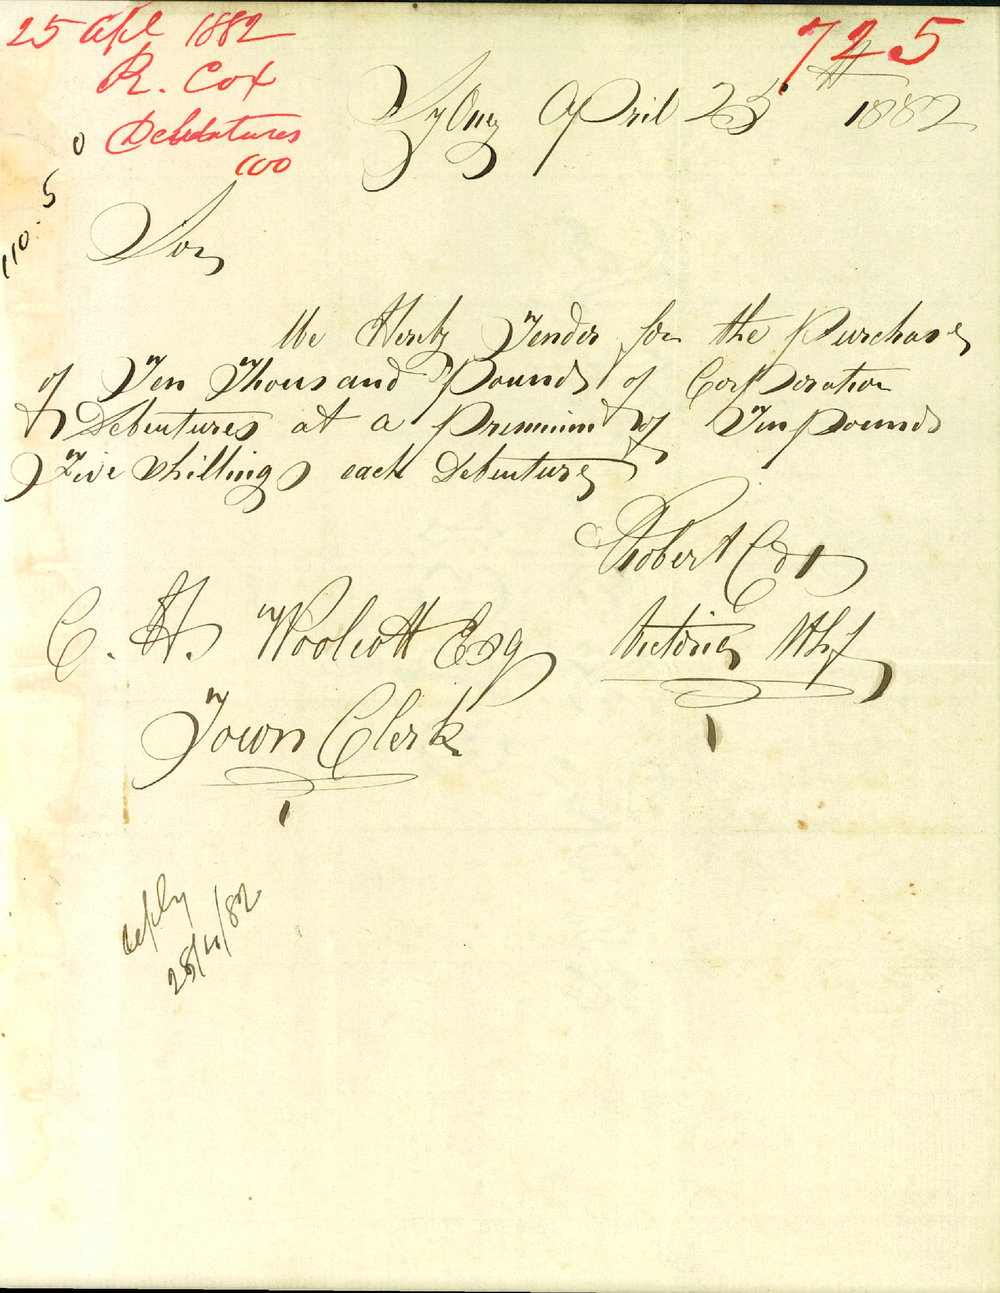 25 Apl 1882
R. Cox
Debentures
100
725
110. 5 0
Sydney April 25th 1882
Sir,
We Hereby Tender for the Purchase
of Ten Thousand Pounds of Corporation
Debentures at a Premium of Ten Pounds
Five Shillings each Debenture
Robert Cox
Victoria Whf
C. H. Woolcott Esq
Town Clerk
reply
28/4/82